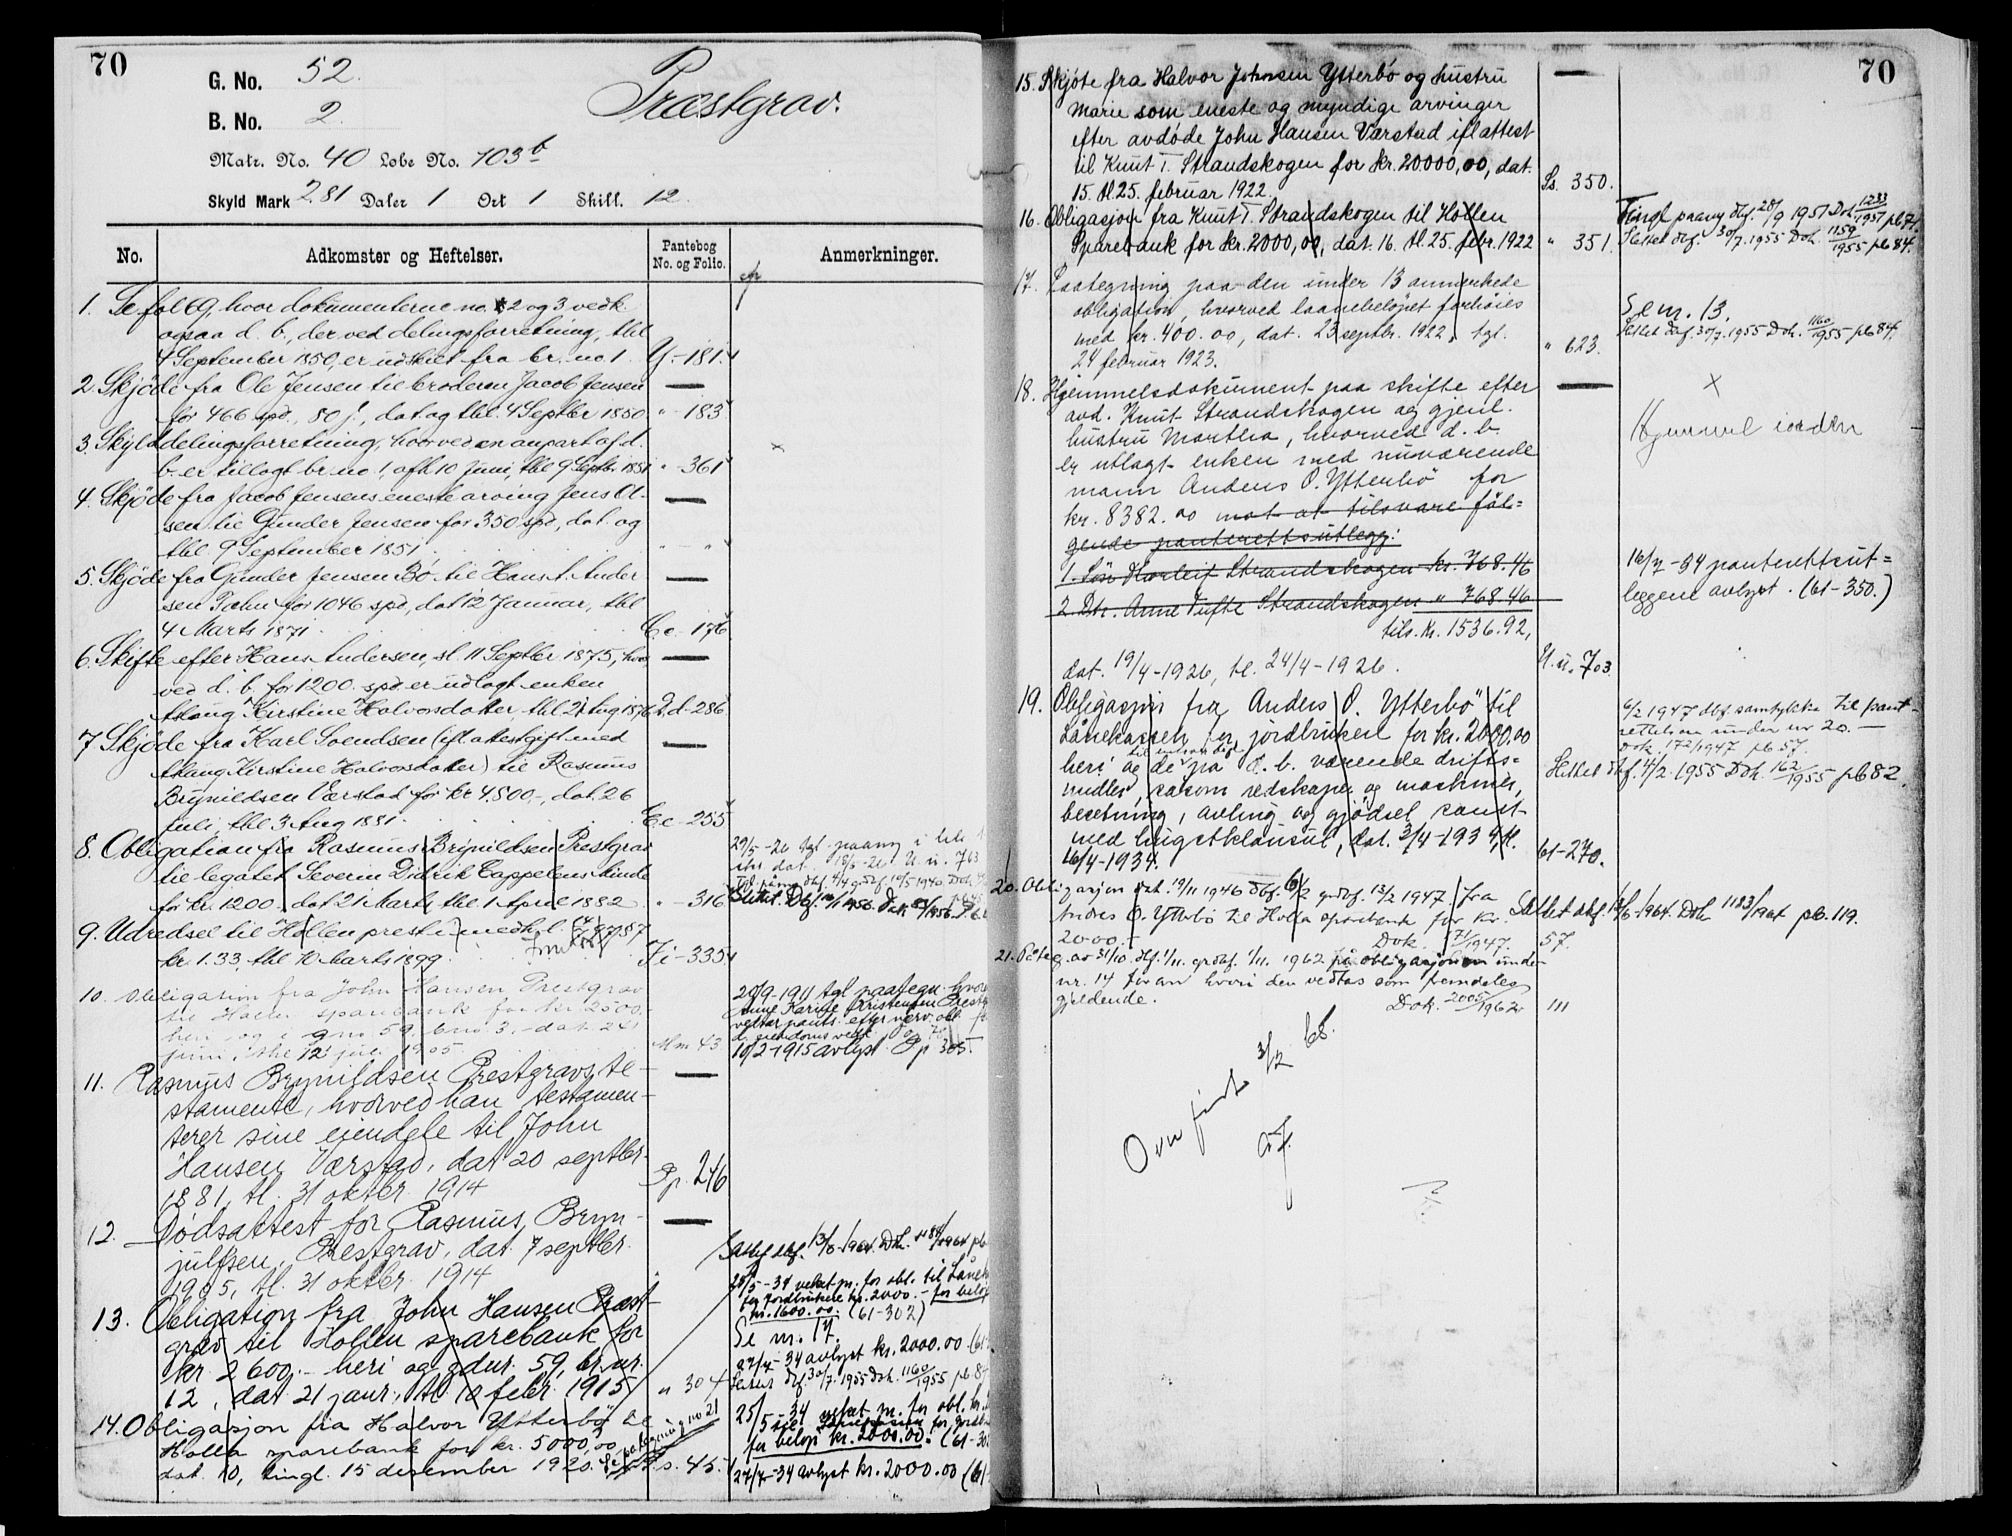 70
G. No. 52.
B. No. 2.
Præstgrav.
Matr. No. 40 Løbe No. 103 b
Skyld Mark 2.81 Daler 1 Ort 1 Skill. 12.
No. Adkomster og Heftelser. Pantebog No. og Folio. Anmerkninger.
1. Se fol 69, hvor dokumenterne no. 2 og 3 vedk.
ogsaa d. b., der ved delingsforretning, thl
4 September 1850, er udskilt fra br. no 1. Y.-181.
2. Skjöde fra Ole Jensen til broderen Jacob Jensen
for 466 spd., 80 s., dat og thl. 4 Septbr 1850. "-183
3. Skylddelingsforretning, hvorved en anpart af d.
b. er tillagt br. no 1, afh. 10 Juni, thl 9 Septbr 1851 "-361
4. Skjöde fra Jacob Jensens eneste arving Jens Ol-
sen til Gunder Jensen for 350 spd, dat. og
thl 9 September 1851. " - "
5. Skjöde fra Gunder Jensen Bö til Hans Ander
sen Tahn for 1046 spd, dat 12 Januar, thl
4 Marts 1871 Cc-176
6. Skifte efter Hans Andersen, sl. 11 Septbr 1875, hvor
ved d. b. for 1200 spd er udlagt enken
Aslaug Kirstine Halvorsdatter, thl 21 Aug 1876 Dd-286
7 Skjöde fra Karl Svendsen (ifl attest gift med
Aslaug Kirstine Halvorsdatter) til Rasmus
Brynildsen Værstad for kr 4.800,-, dat. 26
Juli, thl 3 Aug 1881. Ee-255
8. Obligation fra Rasmus Brynildsen Prestgrav
til legatet Severin Didrik Cappelens Minde
for kr. 1200, dat 21 Marts, thl 1 April 1882 "-316
9. Udredsel til Hollen prest
kr. 1.33, thl 10 Marts 1899. Ji-335
10. Obligasion fra John Hansen Prestgrav
til Hollen sparebank for kr. 2500.-
heri og i gno 59, bno 3, - dat. 24
juni, thl 12 juli 1905. Mm 43
20/9-1911 tgl paategn. hvor
Anne Karine Kristensen Prestg
vedtar pants. efter nærv. obl.
10/2-1915 avlyst. Pp 305.
11. Rasmus Brynildsen Prestgravs te-
stamente, hvorved han testamen-
terer sine eiendele til John
Hansen Værstad, dat 20 septbr.
1881, tl. 31 oktbr. 1914 Pp. 246
12. Dödsattest for Rasmus Bryn-
julfsen Prestgrav, dat. 7 septbr.
1905, tl. 31 oktbr. 1914
13. Obligation fra John Hansen Præst-
grav til Hollen sparebank for
kr 2600.- heri og gdnr. 59, br.nr.
12, dat 21 janr., tl. 10 febr. 1915 " 304
25/5-34 veket pr. for obl. til Låne
for jordbrukere kr. 2000.- for beløp
kr. 1600.00. (61-302)
Se nr. 17.
27/7-34 avlyst kr. 2000.00 (61-
Slettet dbf. 30/7. 1955 Dok. 1160/1955 pb 84
14. Obligasjon fra Halvor Ytterbö til
Holla sparebank for kr. 5000,00
dat. 10, tingl. 15 desember 1920. Se påtegning no 21 Rs. 45.
25/5-34 veket pr. for obl. kr.
til Lånekassen for jordb
for beløp kr. 2000.00. (61-30
27/7-34 avlyst kr. 2000.00 (61-
70
15. Skjöte fra Halvor Johnsen Ytterbö og hustru
Marie som eneste og myndige arvinger
efter avdöde John Hansen Værstad ifl attest
til Knut T. Strandskogen for kr. 20000,00, dat.
15. tl. 25. februar 1922. Ss. 350.
16. Obligasjon fra Knut T. Strandskogen til Hollen
Sparebank for kr. 2000,00, dat. 16. tl. 25. febr. 1922 " 351.
Tingl paany dbf. 28/9 1951 Dok 1233/1951 pb 74.
Slettet dbf. 30/7. 1955 Dok. 1159/1955 pb 84.
17. Paategning paa den under 13 anmerkede
obligation, hvorved laanebelöpet forhöies
med kr. 400.00, dat. 23 septbr. 1922, tgl.
24 februar 1923. " 623.
Se nr. 13.
Slettet dbf. 30/7. 1955 Dok. 1160/1955 pb 84.
18. Hjemmelsdokument paa skifte efter
avd. Knut Strandskogen og gjenl.
hustru Martha, hvorved d. b.
er utlagt enken med nuværende
mann Anders O. Ytterbö for
kr. 8382.00 mot at tilsvare föl=
gende panterettsutlegg:
1. Sön Thorleif Strandskogen kr. 768.46
2. Dtr. Anne Tufte Strandskogen " 768.46
tils. kr. 1536.92,
dat. 19/4-1926, tl. 24/4-1926. U.u. 703
x
Hjemmel i orden
16/7-34 panterettsut=
leggene avlyst. (61-350.)
19. Obligasjon fra Anders O. Ytterbö til
Lånekassen for jordbrukere for kr. 2000.00
heri og de til enhver tid på d. b. værende drifts=
midler, såsom redskaper og maskiner,
besetning, avling og gjödsel samt
med hugstklausul, dat. 3/4-1934, tl.
16/4-1934. 61-270.
6/2 1947 dbf. samtykke til pant-
settelsen under nr 20.-
Dok. 172/1947 pb 57.
Slettet dbf. 4/2. 1955 Dok. 162/1955 pb 82.
20. Obligasjon dat. 19/11 1946 dbf. 6/2 grdbf. 13/2 1947 fra
Anders O. Ytterbö til Holla sparebank for kr.
2000.- Dok. 171/1947. 57.
Slettet dbf. 13/8-1964. Dok. 1183/1964 pb. 119.
21. Påteg. av 31/10. dbf. 1/11. grdbf. 1/11. 1962 på obligasjonen under
nr. 14 foran hvori den vedtas som fremdeles
gjeldende. Dok. 2005/1962 111
Overført 3/2 65.